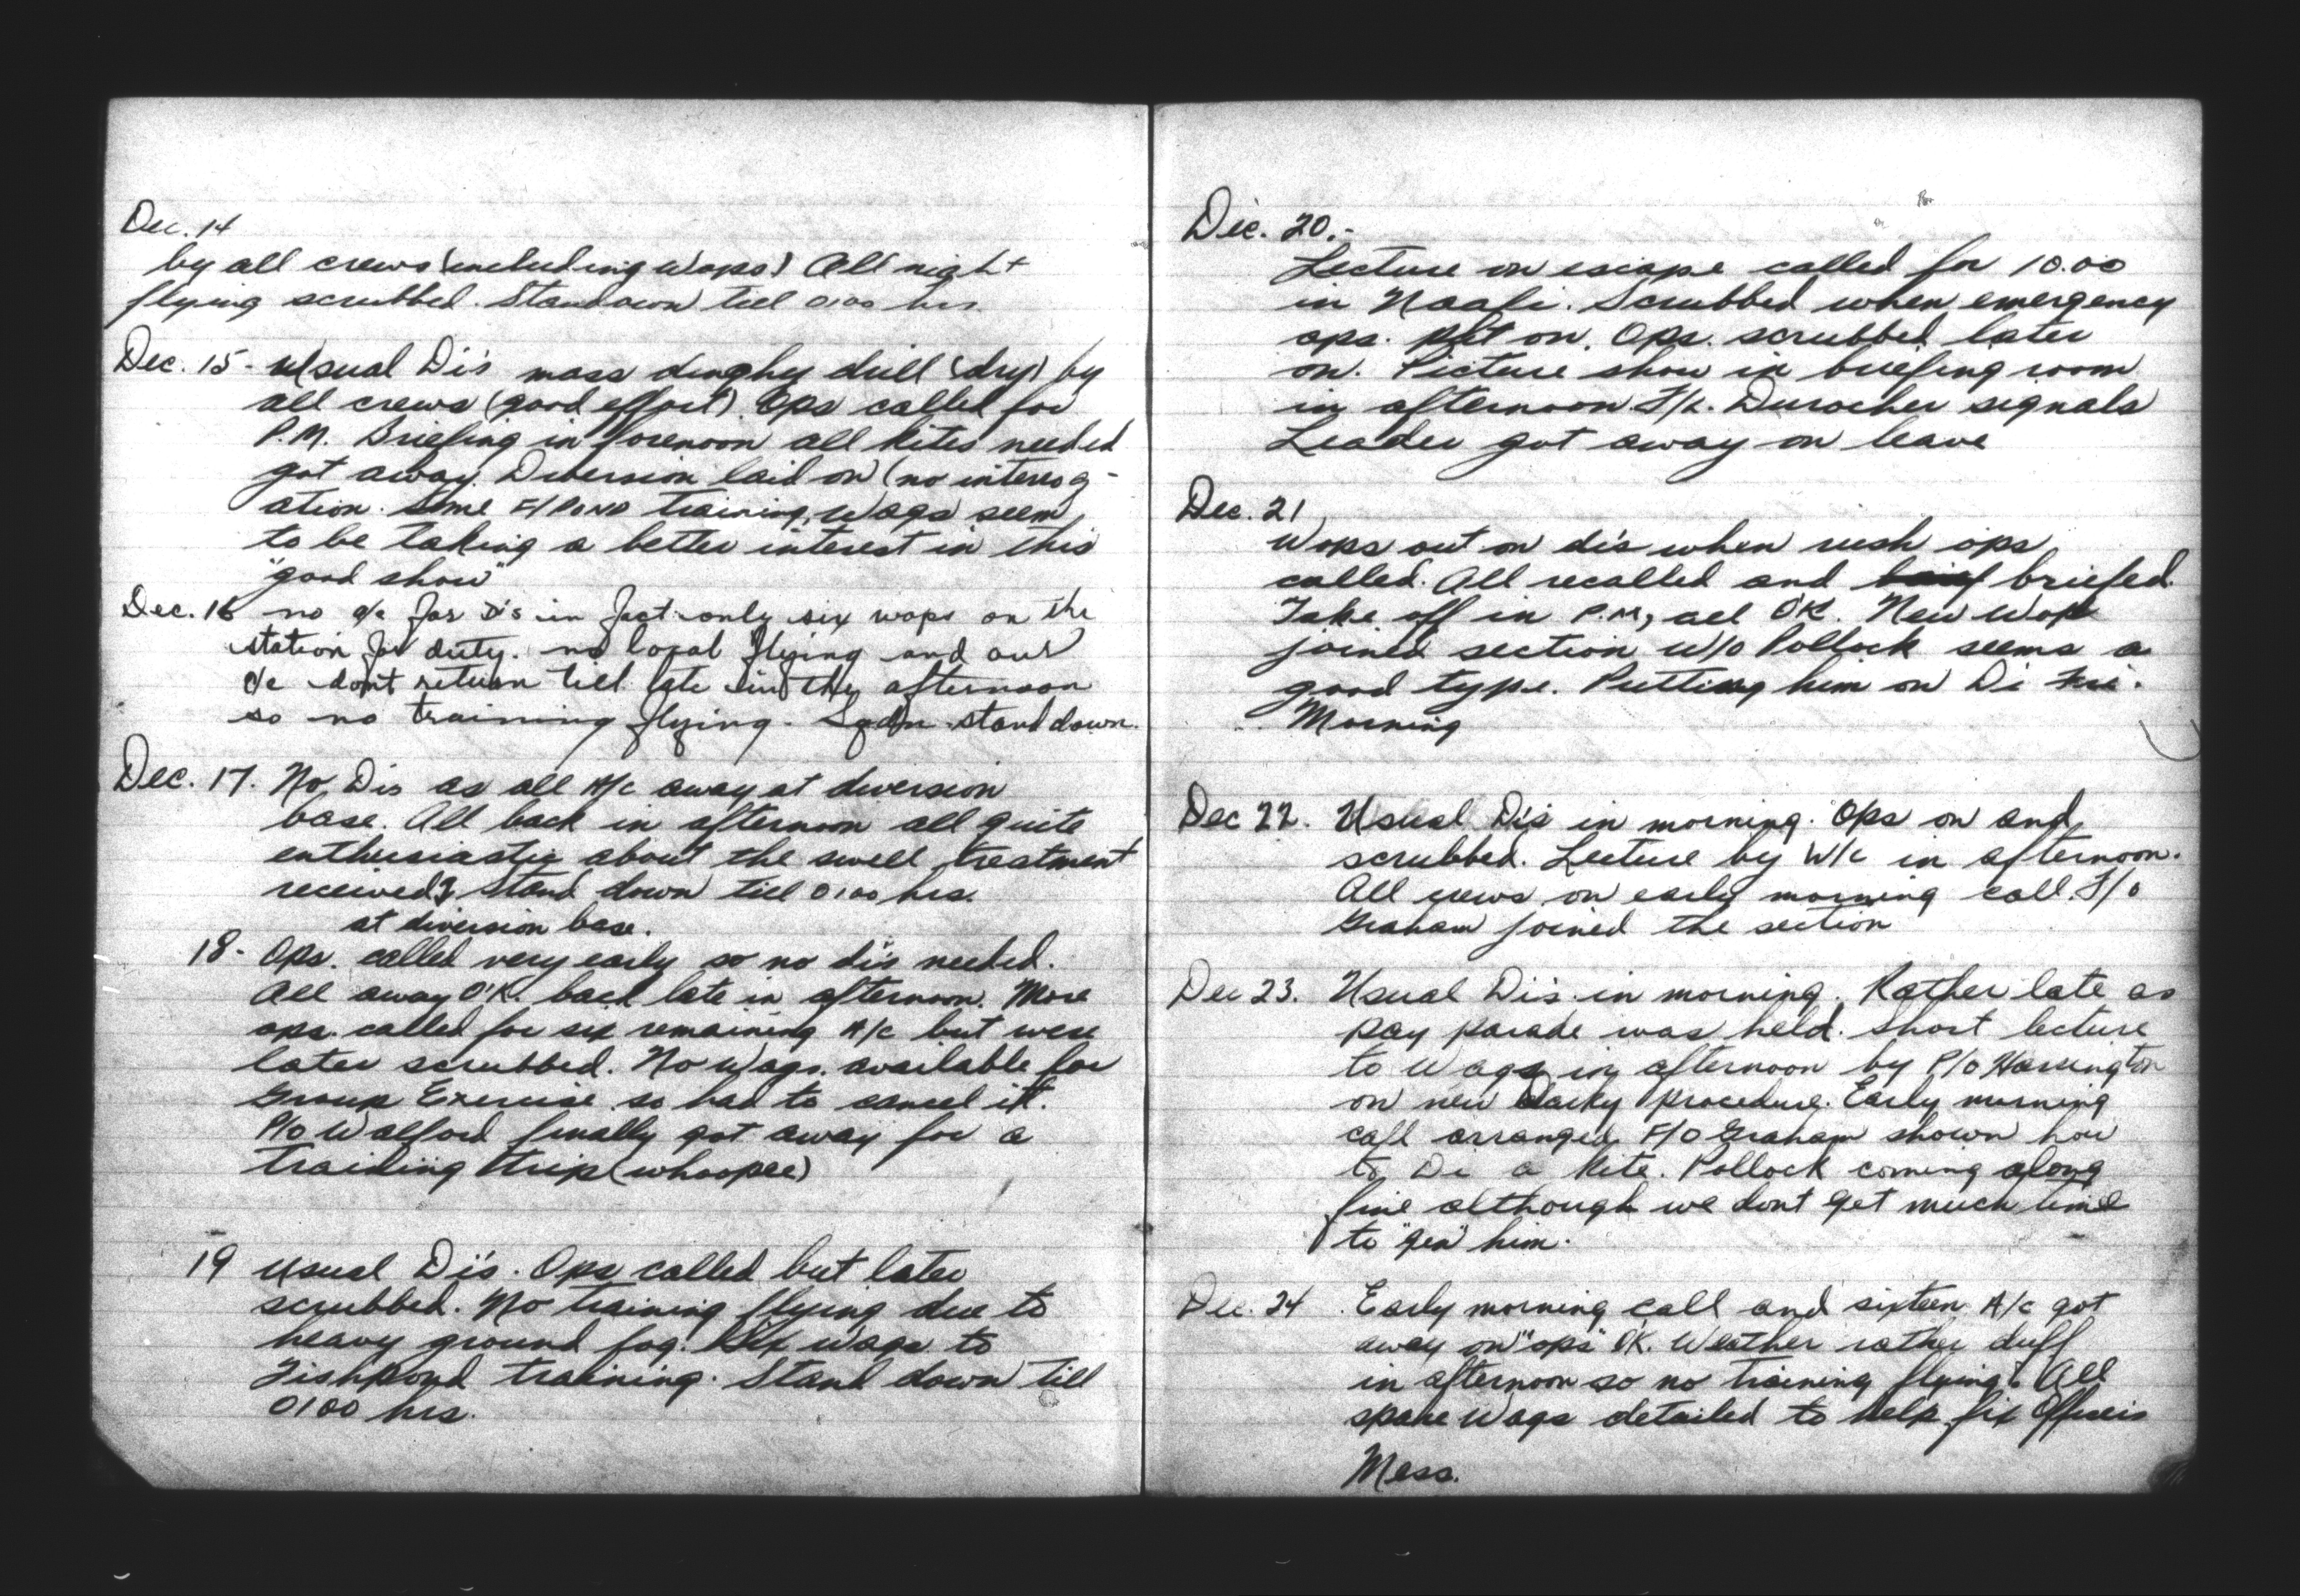 Dec. 14
by all crews (including Wops) All night
flying scrubbed. Standown till 0100 hrs.
Dec. 15 - Usual Di's mass dinghy drill (dry) by
all crews (good effort). Ops called for
P.M. Briefing in forenoon all kites needed
got away. Diversion laid on (no interrog-
ation. Some F/Pond training, Wags seem
to be taking a better interest in this
"good show"
Dec. 16 no a/c for DI's in fact only six wops on the
station for duty. no local flying and our
a/c dont return till late in the afternoon
so no training flying - Sqdn stand down.
Dec. 17. No Dis as all A/c away at diversion
base. All back in afternoon all quite
enthusiastic about the swell treatment
received} Stand down till 0100 hrs.
at diversion base.
18 - Ops. called very early so no di's needed.
All away O'K. back late in afternoon. More
ops. called for six remaining A/c but were
later scrubbed. No Wags. available for
Group Exercise so had to cancel it.
P/o Walford finally got away for a
training trip (whoopee)
19 Usual Di's. Ops called but later
scrubbed. No training flying due to
heavy ground fog. Six wags to
Fishpond training. Stand down till
0100 hrs.
Dec. 20.-
Lecture on escape called for 10.00
in Naafi. Scrubbed when emergency
ops. put on. Ops. scrubbed later
on. Picture show in briefing room
in afternoon F/L. Durocher signals
Leader got away on leave
Dec. 21
Wops out on di's when rush ops
called. All recalled and briefed.
Take off in P.M, all O'K. New Wop
joined section W/o Pollock seems a
good type. Putting him on Di
Morning
Dec 22. Usual Di's in morning. Ops on and
scrubbed. Lecture by W/c in afternoon.
All crews on early morning call. F/o
Graham joined the section
Dec 23. Usual Di's in morning. Rather late as
pay parade was held. Short lecture
to Wags in afternoon by P/o Harrington
on new Darky procedure. Early morning
call arranged, F/O Graham shown how
to Di a kite. Pollock coming along
fine although we dont get much time
to "gen" him.
Dec. 24 Early morning call and sixteen A/c got
away on "ops" OK. Weather rather duff
in afternoon so no training flying. All
spare Wags detailed to help fix Officers
Mess.